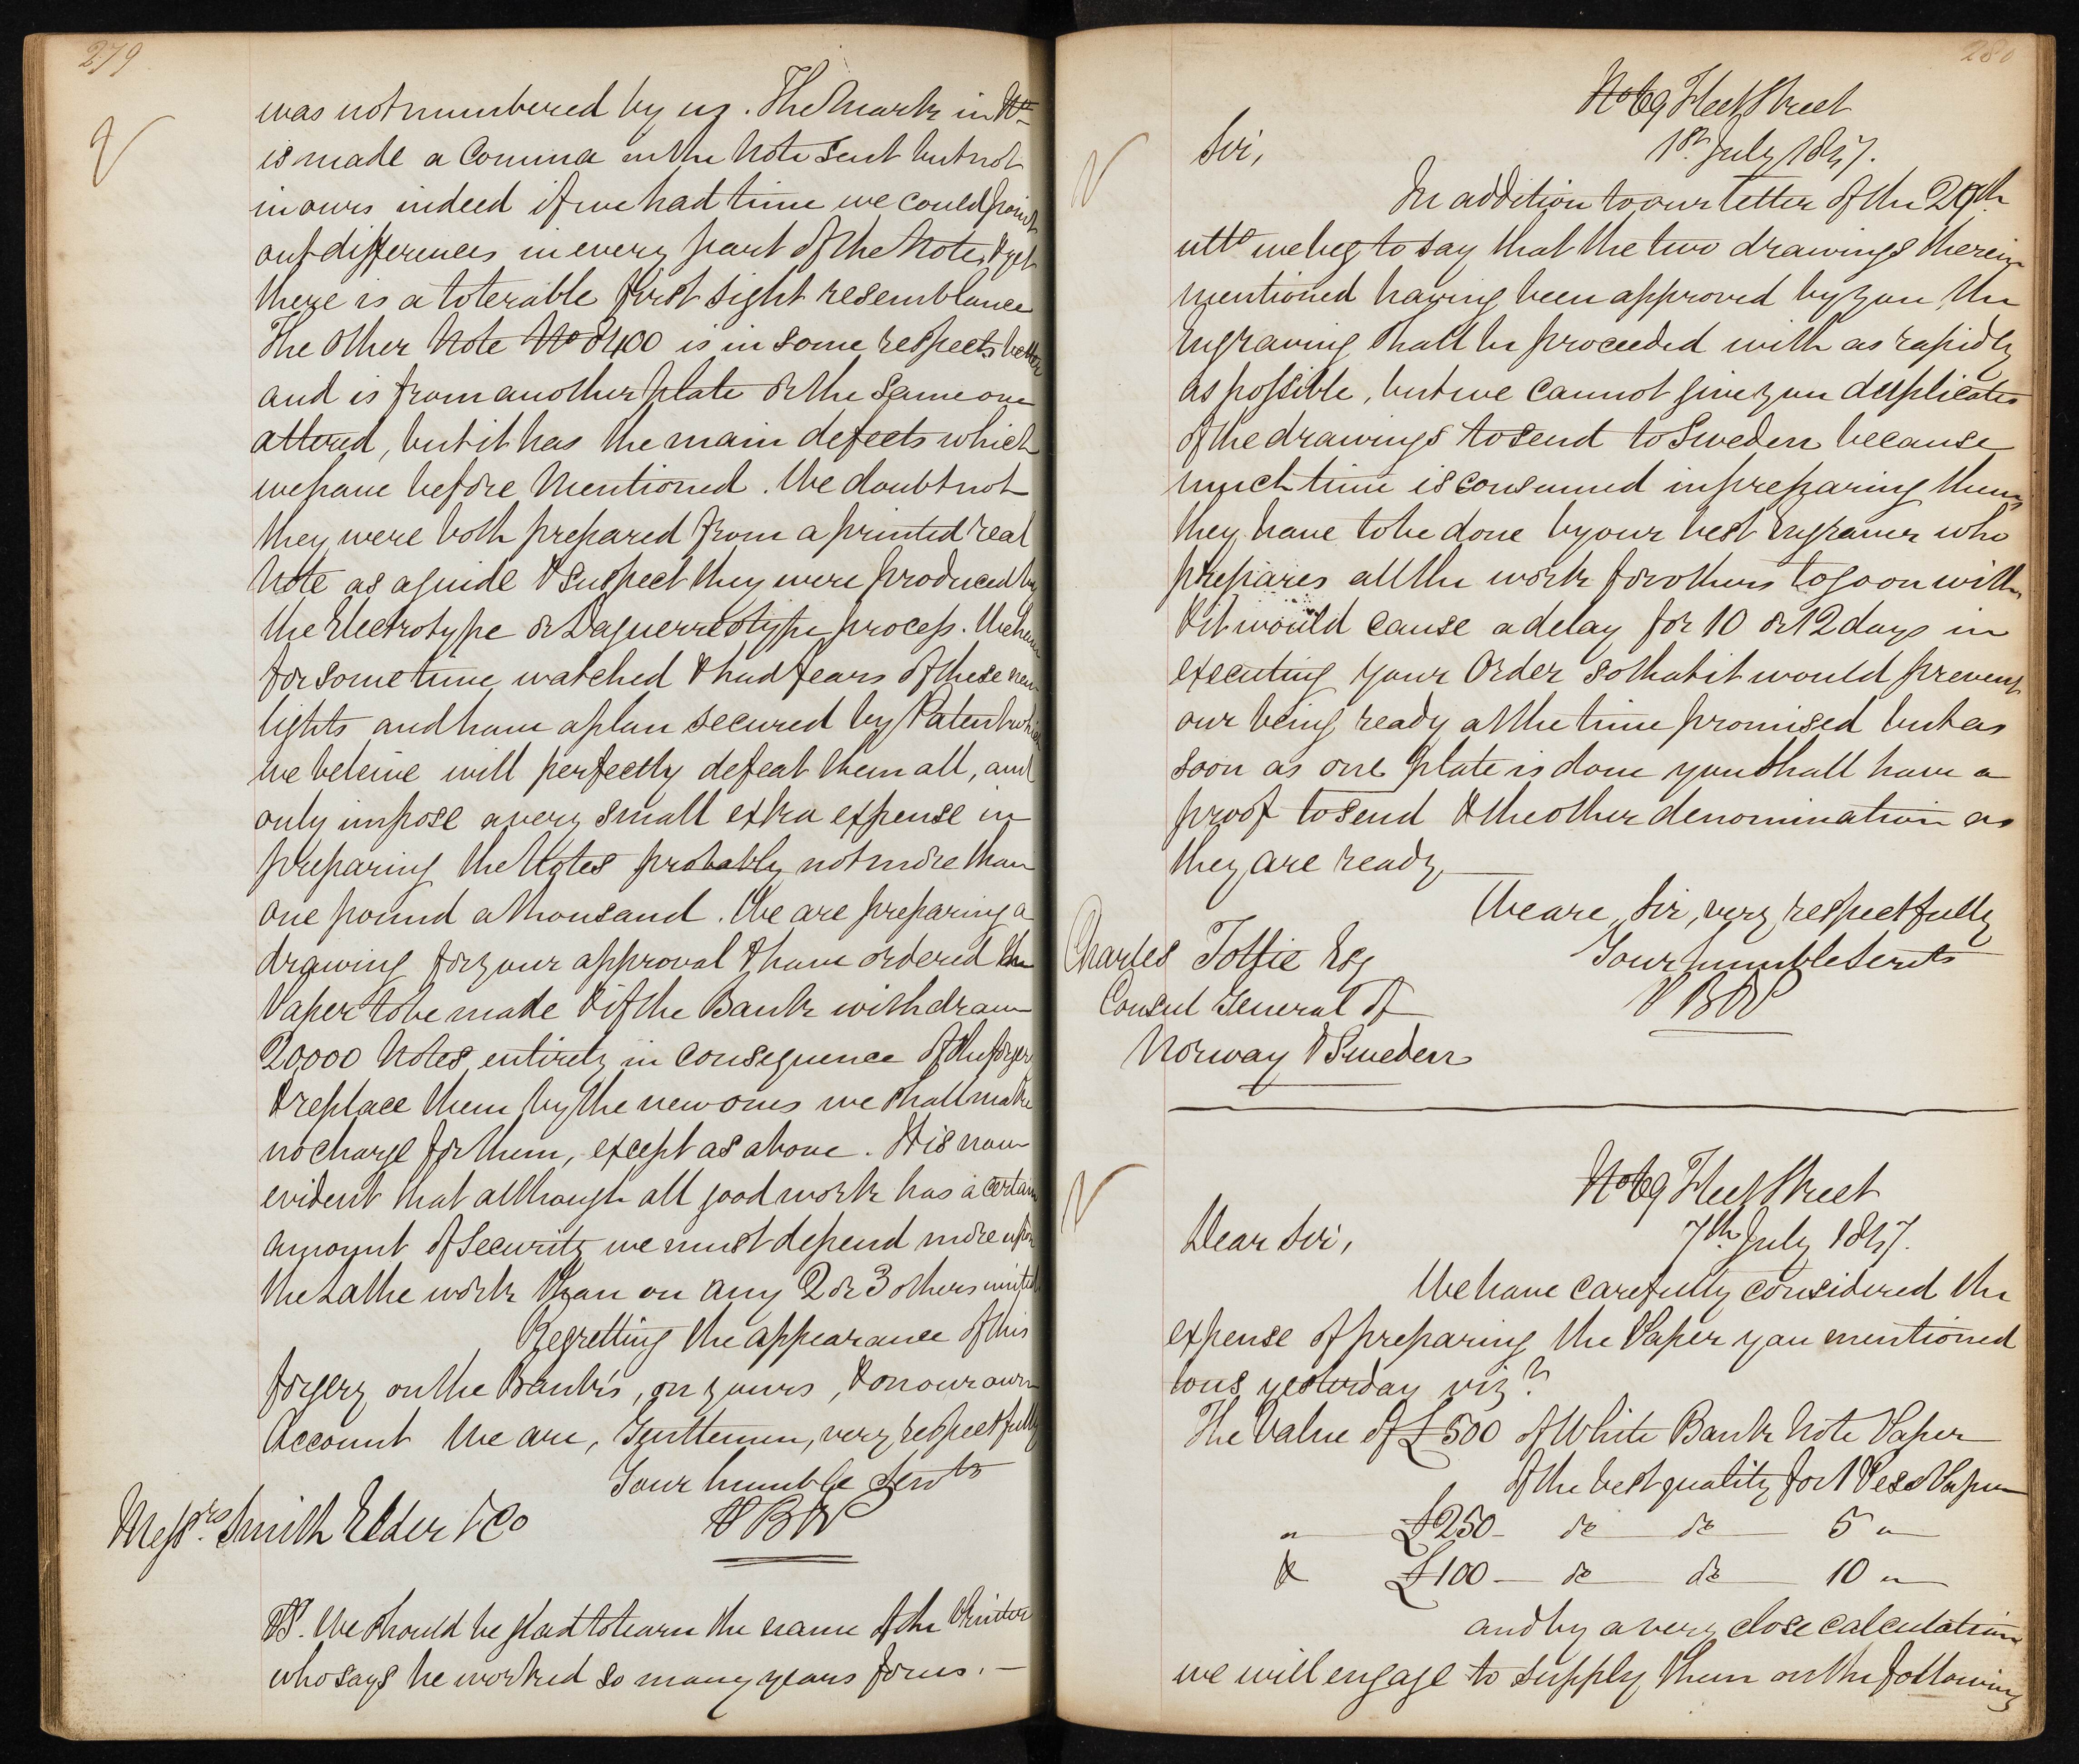 279
was not numbered by us. The Mark in No
is made a Comma in the Note sent but not
in ours indeed if we had time we could point
out differences in every part of the Note, & yet
there is a tolerable first sight resemblance
The other Note No 8400 is in some respects better
and is from another plate or the same one
altered, but it has the main defects which
we have before Mentioned. We doubt not
they were both prepared from a printed real
Note as a guide & suspect they were produced by
the Electrotype or Daguerreotype process. We have
for some time watched & had fears of these new
lights and have a plan secured by Patent which
we beleive will perfectly defeat them all, and
only impose a very small extra expense in
preparing the Notes probably not more than
one pound a thousand. We are preparing a
drawing for your approval & have ordered the
Paper to be made & if the Bank withdraw
20,000 Notes entirely in consequence of the forgery
& replace them by the new ones we shall make
no charge for them, except as above. It is now
evident that although all good work has a certain
amount of Security we must depend more upon
the Lathe work than on any 2 or 3 others united
Regretting the appearance of this
forgery on the Bank's, on yours, & on our own
Account We are, Gentlemen, very respectfully
Your humble Servts
PB&P
Messrs. Smith Elder & Co
PS. We should be glad to learn the name of the Printer
who says he worked so many years for us. —
280
No 69 Fleet Street
1st July 1847.
Sir,
In addition to our letter of the 29th
ulto we beg to say that the two drawings therein
mentioned having been approved by you the
Engraving shall be proceeded with as rapidly
as possible, but we cannot give you duplicates
of the drawings to send to Sweden because
much time is consumed in preparing them,
they have to be done by our best Engraver who
prepares all the work for others to go on with
& it would cause a delay for 10 or 12 days in
executing your Order so that it would prevent
our being ready at the time promised but as
soon as one plate is done you shall have a
proof to send & the other denomination as
they are ready
We are, Sir, very respectfully
Your humble Servts
PB&P
Charles Tottie Esq
Consul General of
Norway & Sweden
No 69 Fleet Street
7th July 1847.
Dear Sir,
We have carefully considered the
expense of preparing the Paper you mentioned
to us yesterday viz?
The Value of £500 of White Bank Note Paper
of the best quality for 1 Peso Paper
" £250 — do — do — 5 "
& £100 — do — do — 10 "
and by a very close calculation
we will engage to supply them on the following